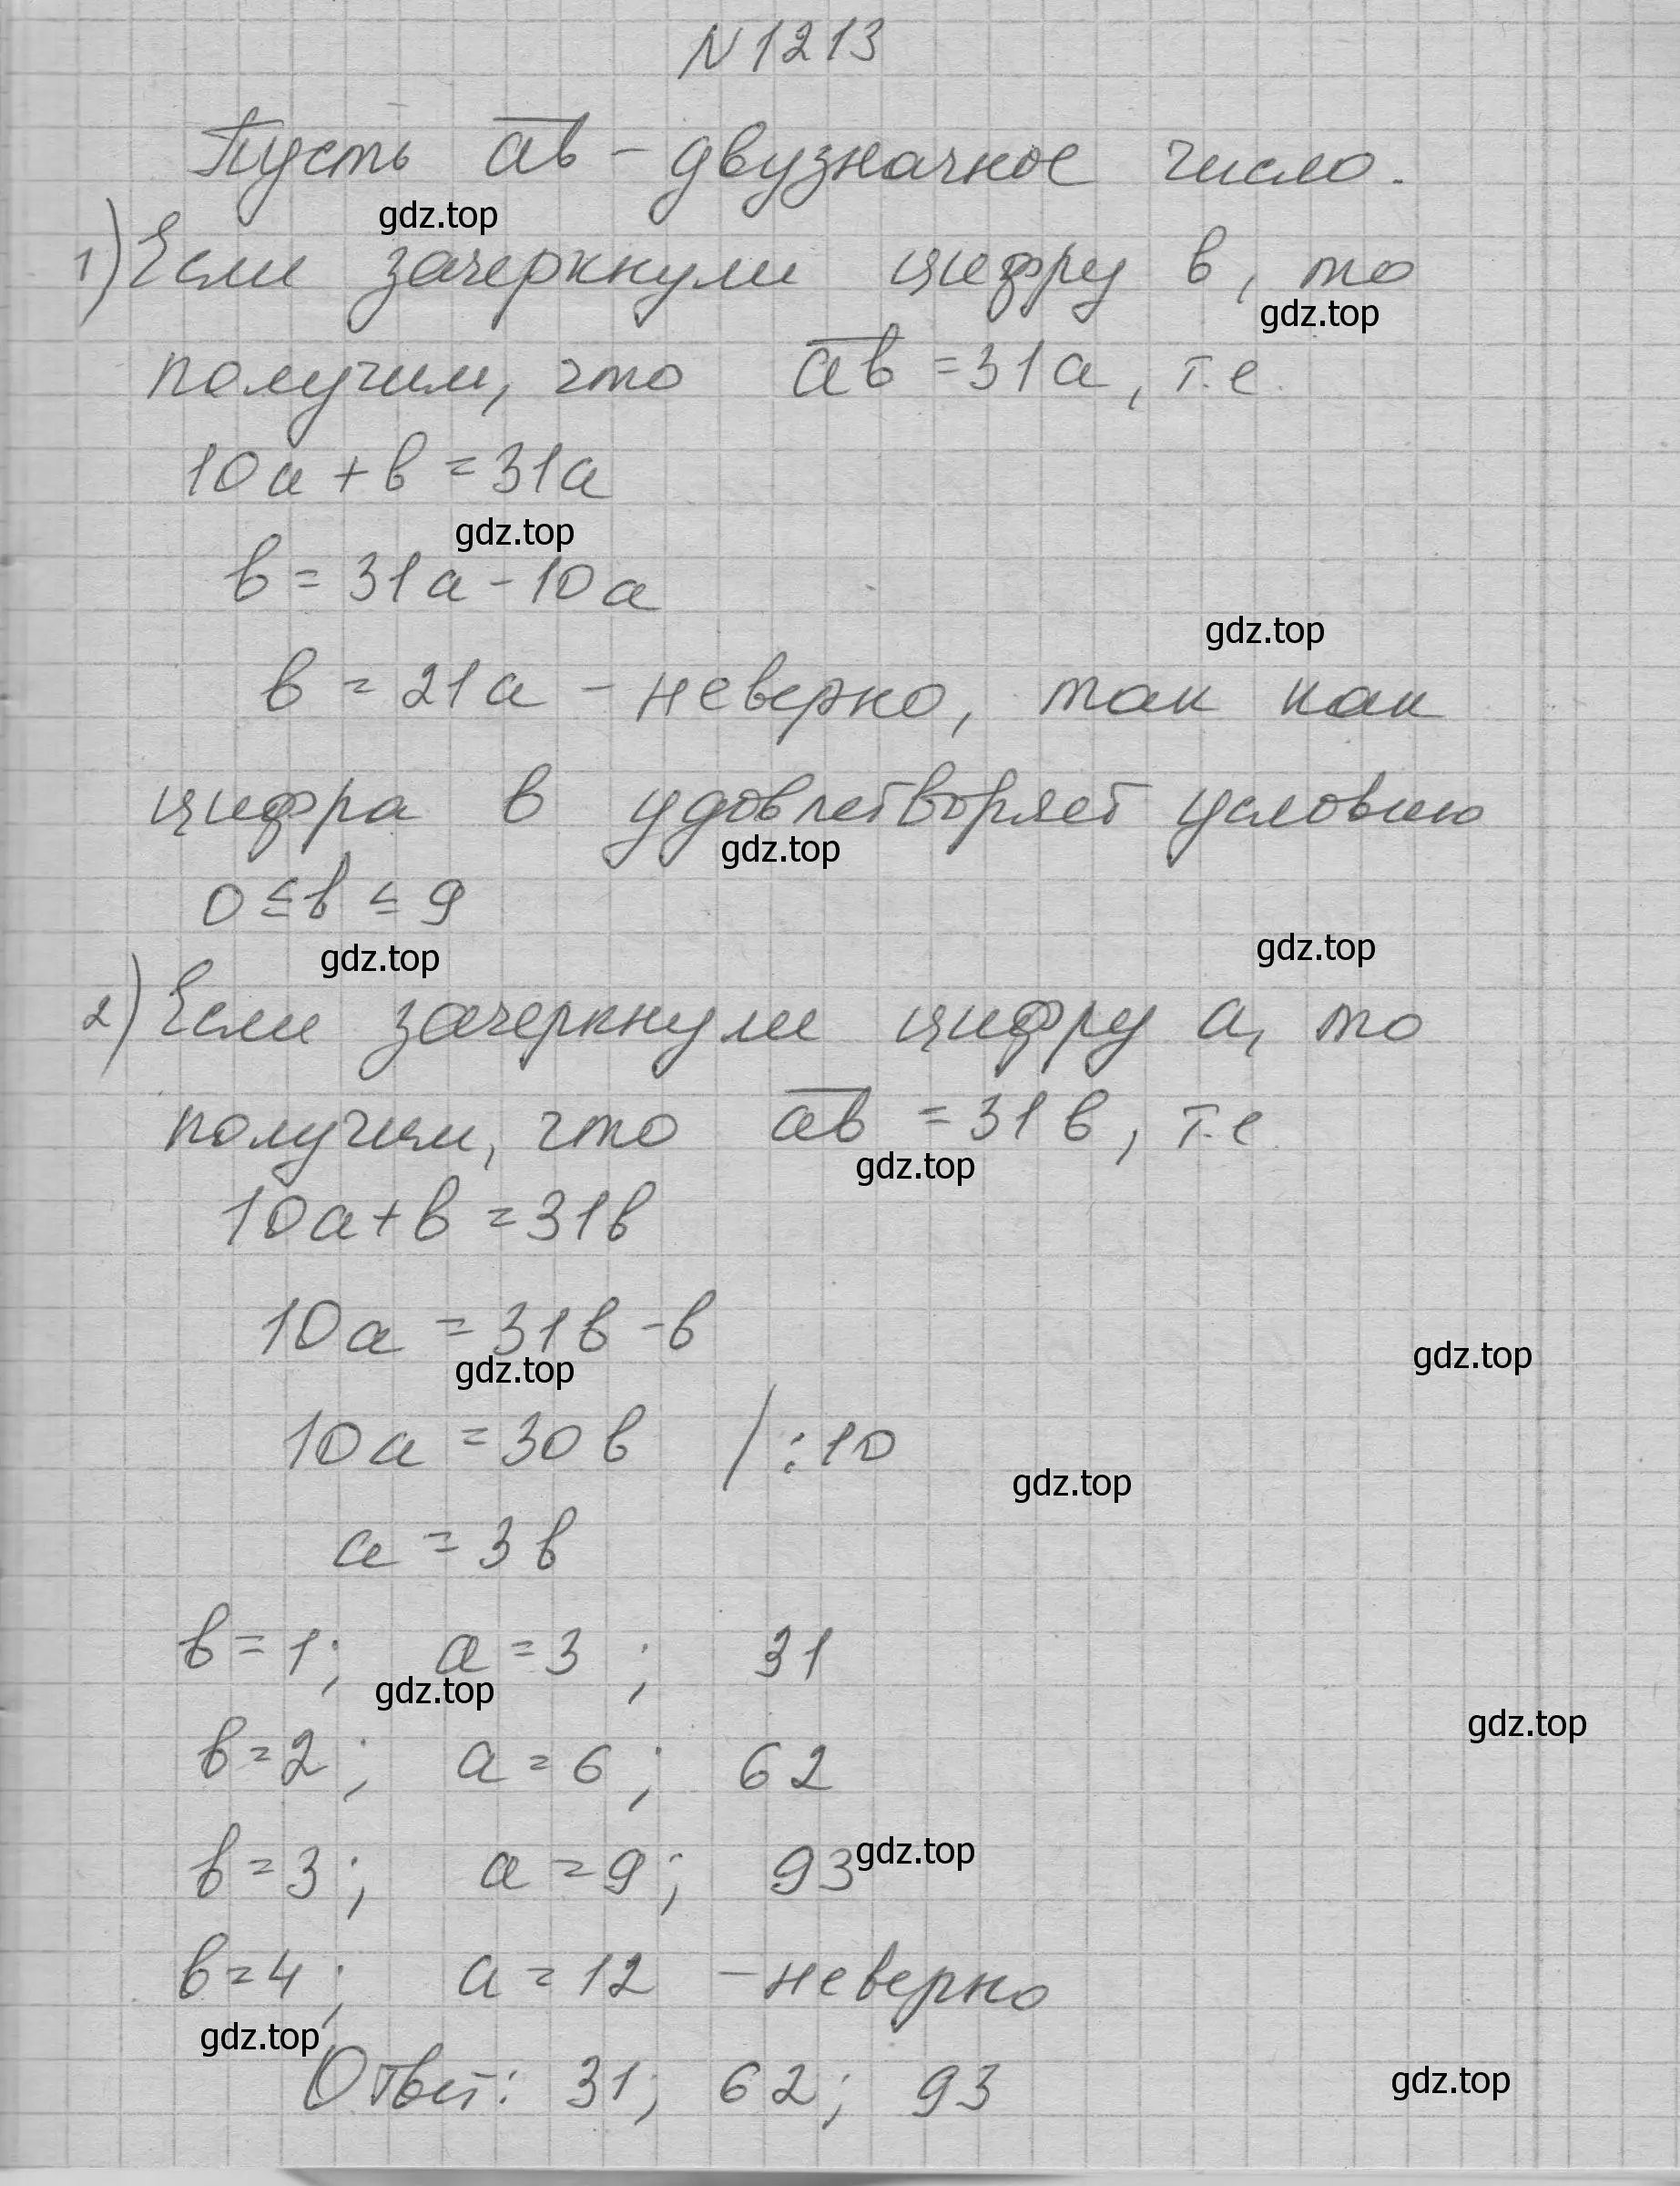 N 1213
Пусть ab - двузначное число.
gdz.top
1) Если зачеркнули цифру в, то
gdz.top
получим, что ab = 31a, т.е.
10a + b = 31a
gdz.top
b = 31a - 10a
gdz.top
b = 21a - неверно, так как
цифра в удовлетворяет условию
gdz.top
0 ≤ b ≤ 9
gdz.top
gdz.top
2) Если зачеркнули цифру a, то
получим, что ab = 31b, т.е.
gdz.top
10a + b = 31b
10a = 31b - b
gdz.top
gdz.top
10a = 30b / :10
gdz.top
a = 3b
b = 1; a = 3; 31
gdz.top
gdz.top
b = 2; a = 6; 62
b = 3; a = 9; 93
gdz.top
b = 4; a = 12 - неверно
gdz.top
Ответ: 31; 62; 93
gdz.top